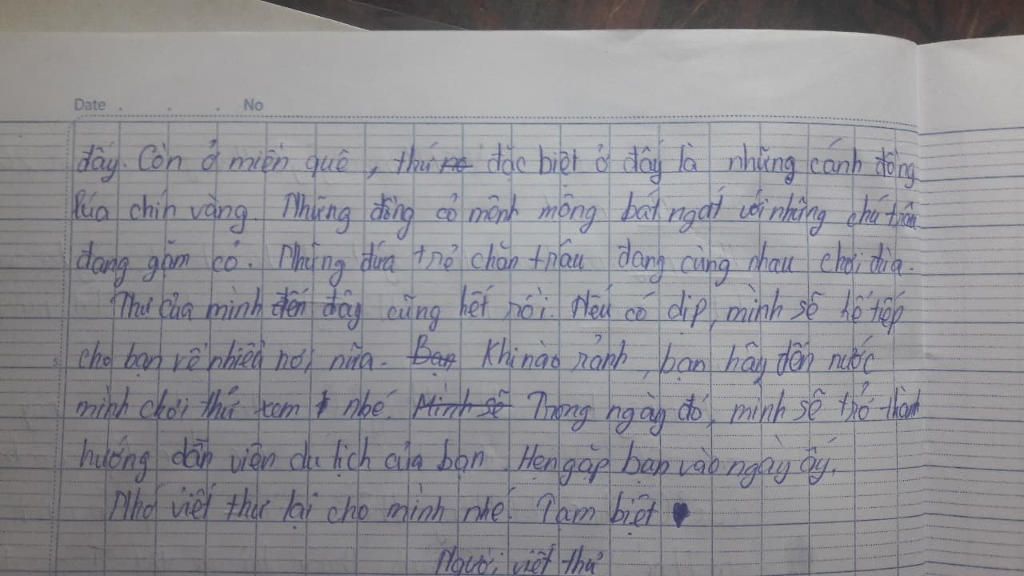 Date . . . No
đấy. Còn ở miền quê, thứ đặc biệt ở đây là những cánh đồng
lúa chín vàng. Những đồng cỏ mênh mông bát ngát với những chú trâu
đang gặm cỏ. Những đứa trẻ chăn trâu đang cùng nhau chơi đùa.
Thư của mình đến đây cũng hết rồi. Nếu có dịp, mình sẽ kể tiếp
cho bạn về nhiều nơi nữa. Bạn Khi nào rảnh, bạn hãy đến nước
mình chơi thử xem nhé. Mình sẽ Trong ngày đó, mình sẽ trở thành
hướng dẫn viên du lịch của bạn. Hẹn gặp bạn vào ngày ấy.
Nhớ viết thư lại cho mình nhé. Tạm biệt
Người viết thư